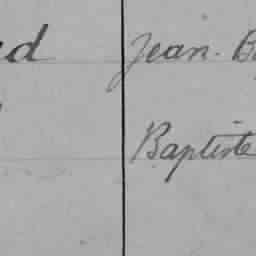 ed Jean. B
Baptiste